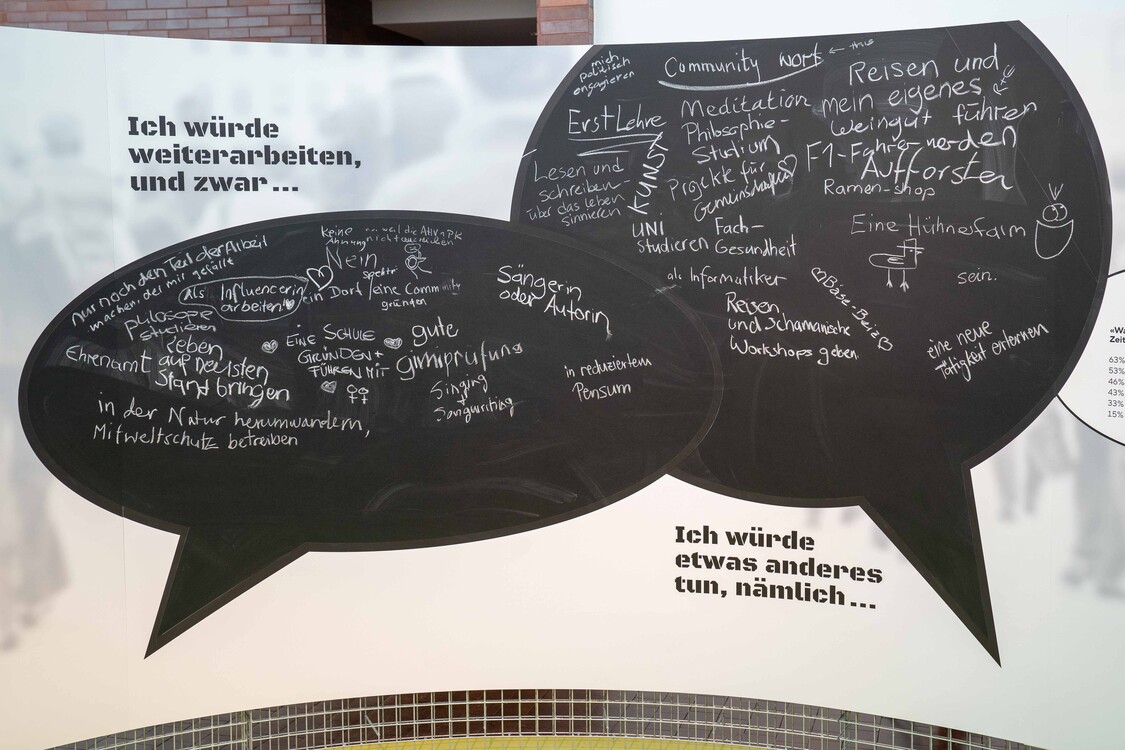 Ich würde
weiterarbeiten,
und zwar...
Nur noch den Teil der Arbeit
machen, der mir gefällt
keine
Ahnung
Nein
als Influencerin
arbeiten
ein Dorf / eine Community
gründen
philosopie
studieren
leben
Ehrenamt auf nechsten
Stand bringen
EINE SCHULE
GRÜNDEN +
FÜHREN MIT
gute
gimiprüfung
Singing
+
Songwriting
Sängerin
oder Autorin
in reduziertem
Pensum
in der Natur herumwandern,
Mitweltschutz betreiben
mich
politisch
engagieren
Community work ← this
Reisen und
mein eigenes
Weingut führen
Erst Lehre
Meditation
Philosophie-
Studium
KUNST
F1-Fahrer werden
Aufforsten
Lesen und
schreiben-
über das leben
sinnieren
Projekte für
Gemeinschaften
Ramen-shop
UNI
studieren
Fach-
Gesundheit
Eine Hühnerfarm
sein.
als Informatiker
Reisen
und Schamanische
Workshops geben
Bäse Beiz
eine neue
Tätigkeit erlernen
Ich würde
etwas anderes
tun, nämlich...
63%
53%
46%
43%
33%
15%